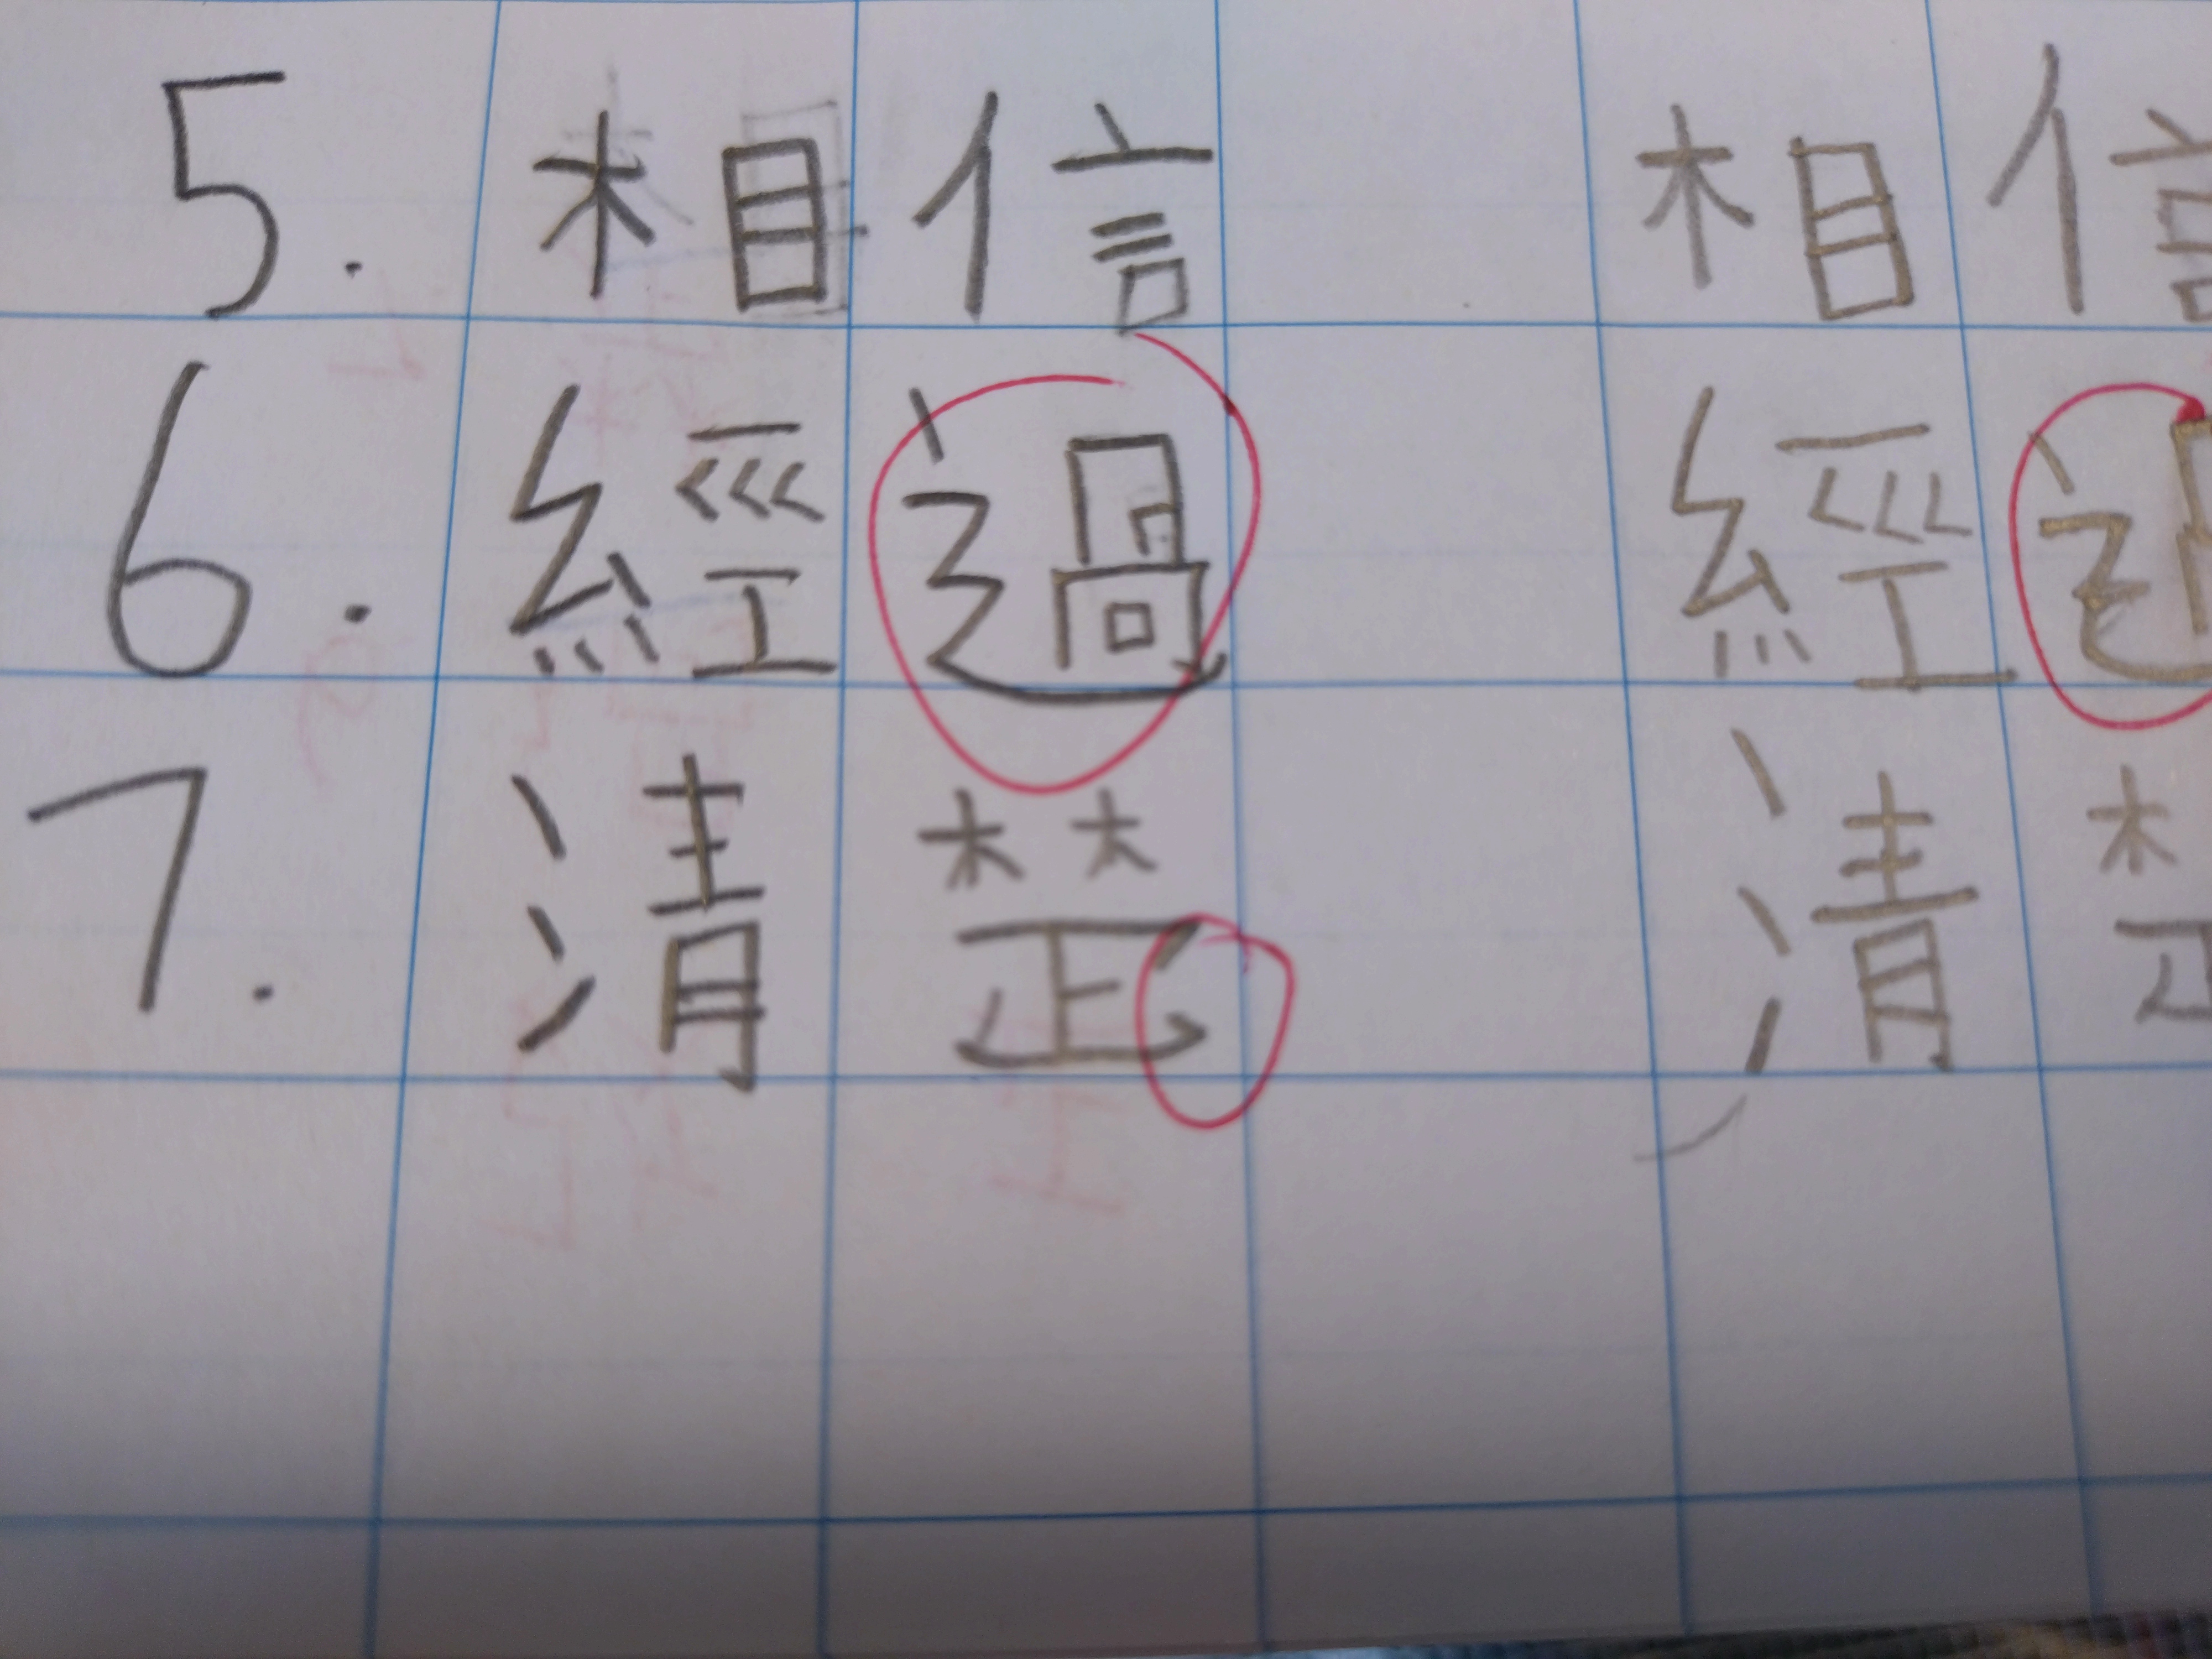 5. 相信 相信
6. 經過 經過
7. 清楚 清楚